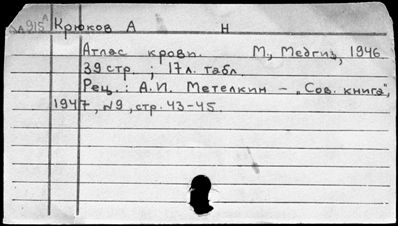 915 Крюков А Н
Атлас крови. М., Медгиз, 1946
39 стр. ; 17 л. табл.
Рец.: А.И. Метелкин – „Сов. книга",
1947, №9, стр. 43-45.